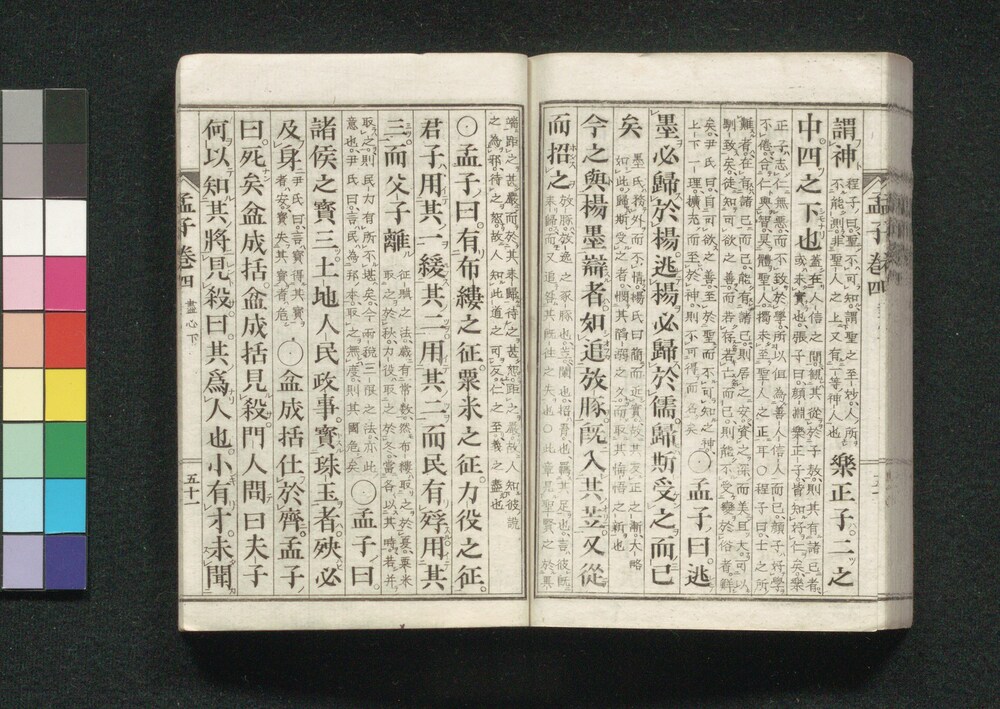 孟子卷四
謂神
程子曰聖不可知謂聖之至妙人所
不能測非聖人之上又有一等神人也
樂正子二之
中四之下也
蓋在人信之間觀其從於子敖則其有諸己者
或未實也張子曰顏淵樂正子皆知好仁矣樂
正子志仁無惡而不致於學所以但為善人信人而已顏子好學
不倦合仁與智具體聖人獨未至聖人之止耳○程子曰士之所
難者在有諸己而已能有諸己則居之安資之深而美且大可以
馴致矣徒知可欲之善而若存若亡而已則能不受變於俗者鮮
矣尹氏曰自可欲之善至於聖而不可知之神
上下一理擴充而至於神則不可得而名矣
○孟子曰逃
墨必歸於楊逃楊必歸於儒歸斯受之而已
矣
墨氏務外而不情楊氏曰簡而近實故其反正之漸大略
如此歸斯受之者憫其陷溺之久而取其悔悟之新也
今之與楊墨辯者如追放豚旣入其苙又從
而招之
放豚放逸之豕豚也苙闌也招罥也羈其足也言彼既
來歸而又追咎其既往之失也○此章見聖賢之於異
端距之甚嚴而於其來歸待之甚恕距之嚴故人知彼說
之為邪待之恕故人知此道之可反仁之至義之盡也
○孟子曰有布縷之征粟米之征力役之征
君子用其一緩其二用其二而民有殍用其
三而父子離
征賦之法歲有常數然布縷取之於夏粟米
取之於秋力役取之於冬當各以其時若并
取之則民力有所不堪矣今兩稅三限之法亦此
意也尹氏曰言民為邦本取之無度則其國危矣
○孟子曰
諸侯之寶三土地人民政事寶珠玉者殃必
及身
尹氏曰言寶得其寶
者安寶失其寶者危
○盆成括仕於齊孟子
曰死矣盆成括盆成括見殺門人問曰夫子
何以知其將見殺曰其爲人也小有才未聞
孟子卷四
盡心下
五十一